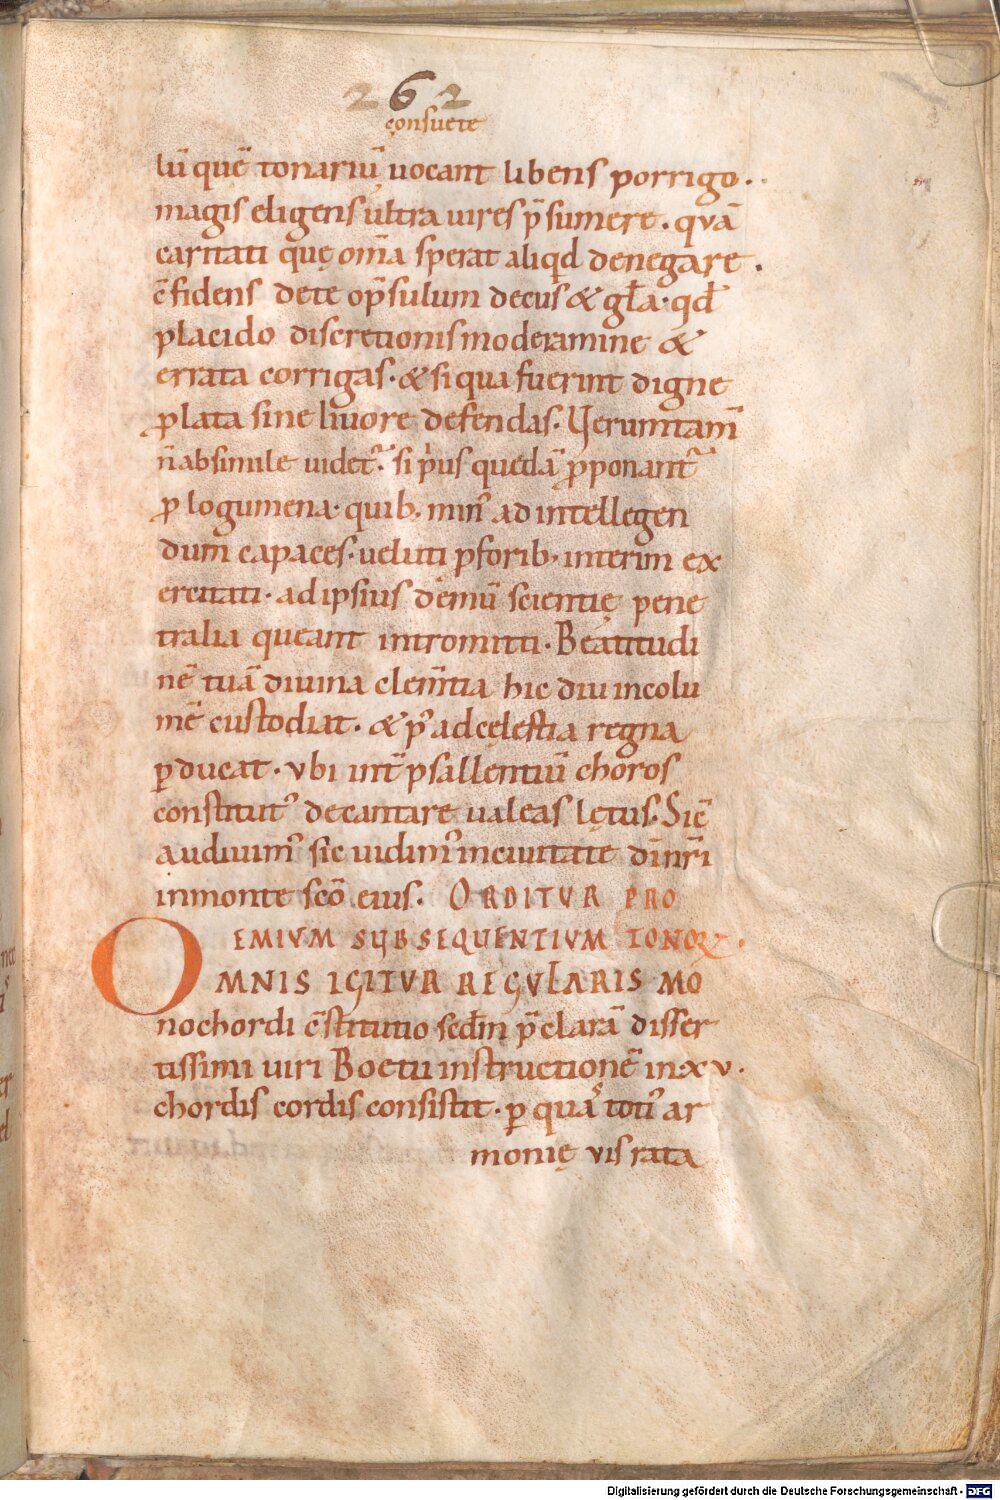 262
consuete
lū quē tonariū uocant libens porrigo.
magis eligens ultra uires p̄sumere. quā
caritati quę om̄a sperat aliqd denegare.
c̄fidens de te op̄sulum decus & gl̄a. qd̄
placido discretionis moderamine &
errata corrigas. & si qua fuerint digne
ꝓlata sine liuore defendas. Uerumtam̄
n̄ absimile uidet᷑. si pͥus quędā ꝓponant᷑
ꝓlogumena. quib. min᷒ ad intellegen
dum capaces. ueluti p̱forib. interim ex
ercitati. ad ipsius demū scientię pene
tralia queant intromitti. Beatitudi
nē tuā diuina clem̄tia hic diu incolu
mē custodiat. & p᷒ ad cęlestia regna
ꝑducat. ubi int̄ psallentiū choros
constitut᷒ decantare ualeas lętus. Sic̄
audiuim᷒ sic uidim᷒ in ciuitate dī nr̄i
in monte scō eius. ORDITUR PRO
EMIUM SUBSEQUENTIUM TONORꝜ.
OMNIS IGITUR REGULARIS MO
nochordi c̄stitutio scdm̄ p̄clarā disser
tissimi uiri Boetii instructionē in xv.
chordis cordis consistit. ꝑ quas tot᷒ ar
monię uis rata
Digitalisierung gefördert durch die Deutsche Forschungsgemeinschaft - DFG